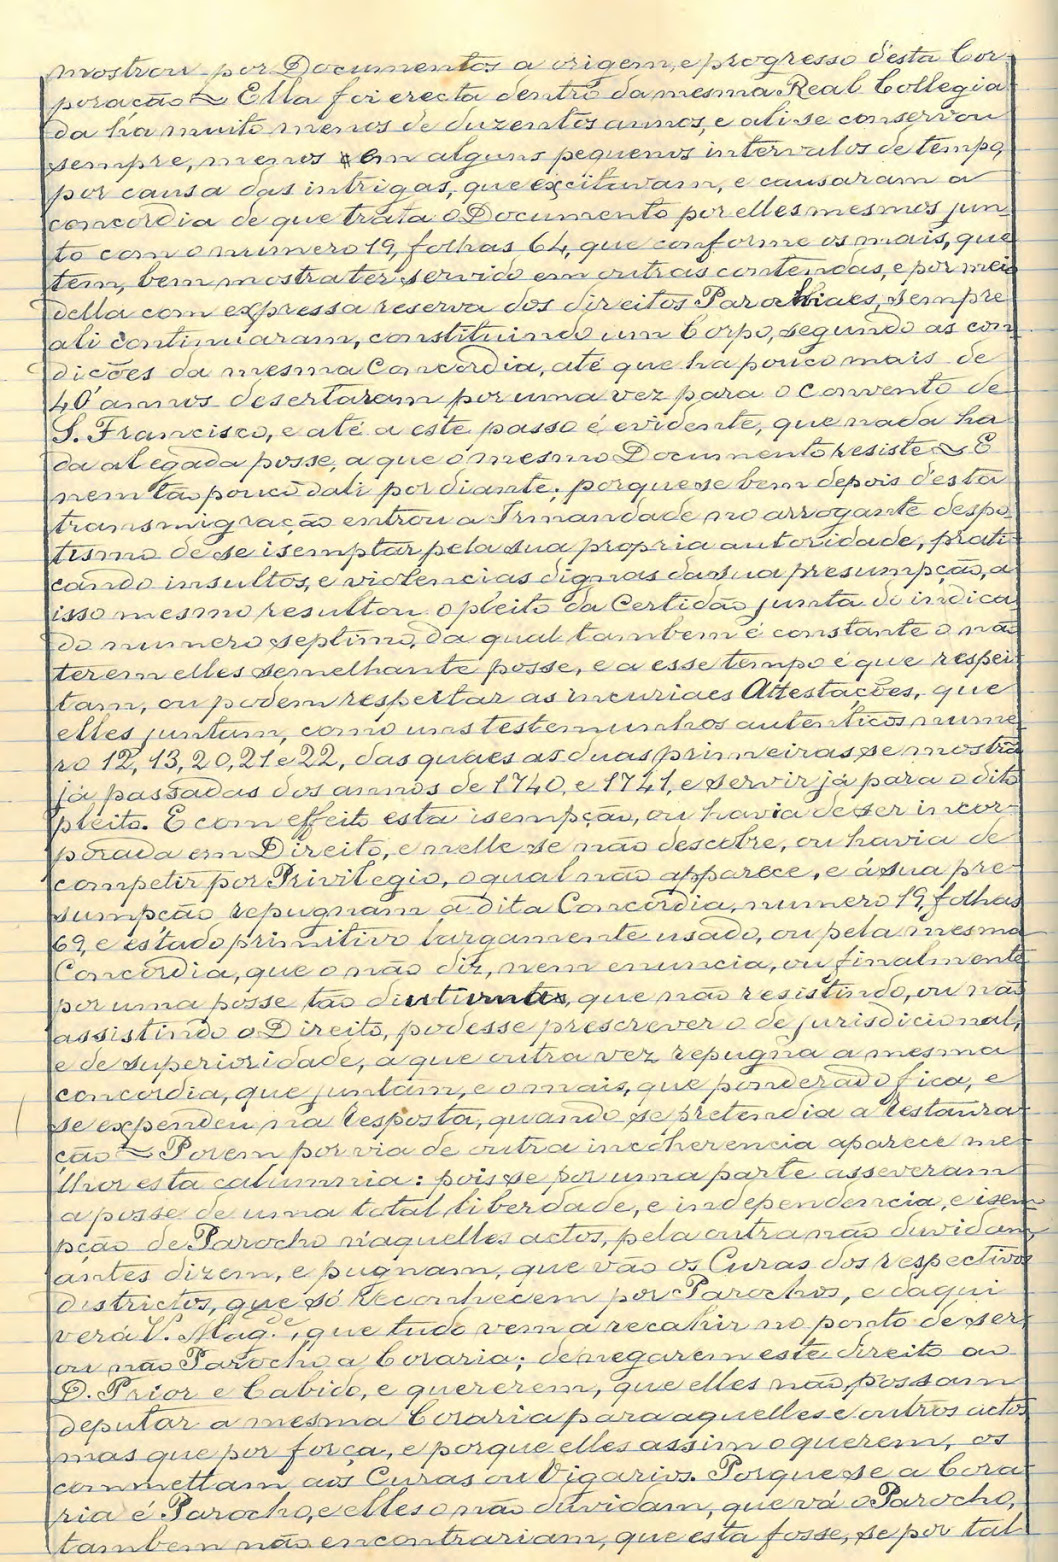 mostrou por Documentos a origem, e progresso d'esta Cor-
poração ~ Ella foi erecta dentro da mesma Real Collegia
da ha muito menos de duzentos annos, e ali se conservou
sempre, menos em alguns pequenos intervalos de tempo,
por causa das intrigas, que excitavam, e causaram a
concordia de que trata o Documento por elles mesmos jun-
to com o numero 19, folhas 64, que conforme os mais, que
tem, bem mostra ter servido em outras contendas, e por meio
della com expressa reserva dos direitos Parochiaes, sempre
ali continuaram, constituindo um Corpo, segundo as con-
dições da mesma Concordia, até que ha pouco mais de
40 annos desertaram por uma vez para o Convento de
S. Francisco, e até a este passo é evidente, que nada ha
da alegada posse, a que o mesmo Documento resiste ~ E
nem tão pouco dali por diante; porque se bem depois d'esta
transmigração entrou a Irmandade no arrogante despo-
tismo de se isemptar pela sua propria autoridade, prati-
cando insultos, e violencias dignas da sua presumpção, a
isso mesmo resultou o pleito da Certidão junta do indica
do numero septimo, da qual tambem é constante o não
terem elles semelhante posse, e a esse tempo é que respei-
tam, ou podem respeitar as incuriaes Attestações, que
elles juntam, como uns testemunhos autenticos nume
ro 12, 13, 20, 21 e 22, das quaes as duas primeiras se mostra
já passadas dos annos de 1740, e 1741, e servir já para o dito
pleito. E com effeito esta isempção, ou havia de ser incor-
porada em Direito, e nelle se não descobre, ou havia de
competir por Privilegio, o qual não apparece, e á sua pre-
sumpção repugnam a dita Concordia, numero 19, folhas
69, e estado primitivo largamente usado, ou pela mesma
Concordia, que o não diz, nem enuncia, ou finalmente
por uma posse tão diuturna, que não resistindo, ou não
assistindo o Direito, podesse prescrever o de jurisdicional,
e de superioridade, a que outra vez repugna a mesma
concordia, que juntam, e o mais, que ponderado fica, e
se expendeu na Resposta, quando se pretendia a Restaura-
ção ~ Porem por via de outra incoherencia aparece me-
lhor esta calumnia: pois se por uma parte asseveram
a posse de uma total liberdade, e independencia, e isem-
pção de Parocho n'aquelles actos, pela outra não duvidam,
antes dizem, e pugnam, que vão os Curas dos respectivos
districtos, que só reconhecem por Parochos, e daqui
verá V. Mag.de, que tudo vem a recahir no ponto de ser,
ou não Parocho a Coraria; denegarem este direito ao
D. Prior e Cabido, e quererem, que elles não possam
deputar a mesma Coraria para aquelles e outros actos
mas que por força, e porque elles assim o querem, os
commettam aos Curas ou Vigarios. Porque se a Cora-
ria é Parocho, e elles o não duvidam, que vá o Parocho,
tambem não encontrariam, que esta fosse, se por tal